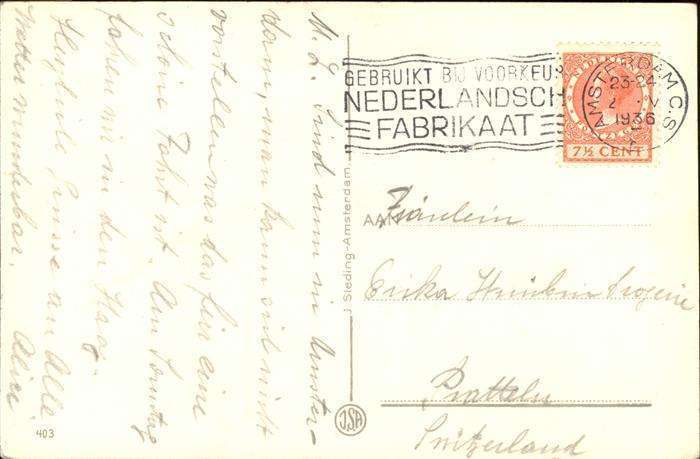 M. L. Sind nun in Amster-
dam, man kann sich nicht
vorstellen was das für eine
schöne Fahrt ist. Am Sonntag
fahren wir in den Haag.
Herzliche Grüsse an Alle
Wetter wunderbar. Alice
403
J. Sleding-Amsterdam
JSA
GEBRUIKT BIJ VOORKEUR
NEDERLANDSCH
FABRIKAAT
AMSTERDAM C.S
23-24
1936
NEDERLAND
7½ CENT
AAN Fräulein
Erika
Drogerie
Pratteln
Switzerland